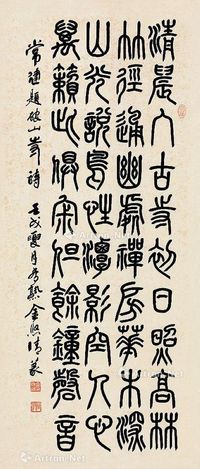 清晨入古寺初日照高林
竹徑通幽處禪房華木深
山光說鳥性潭影空人心
萬籟此俱寂但餘鐘磬音
常建題破山寺詩 壬戌夏月 金